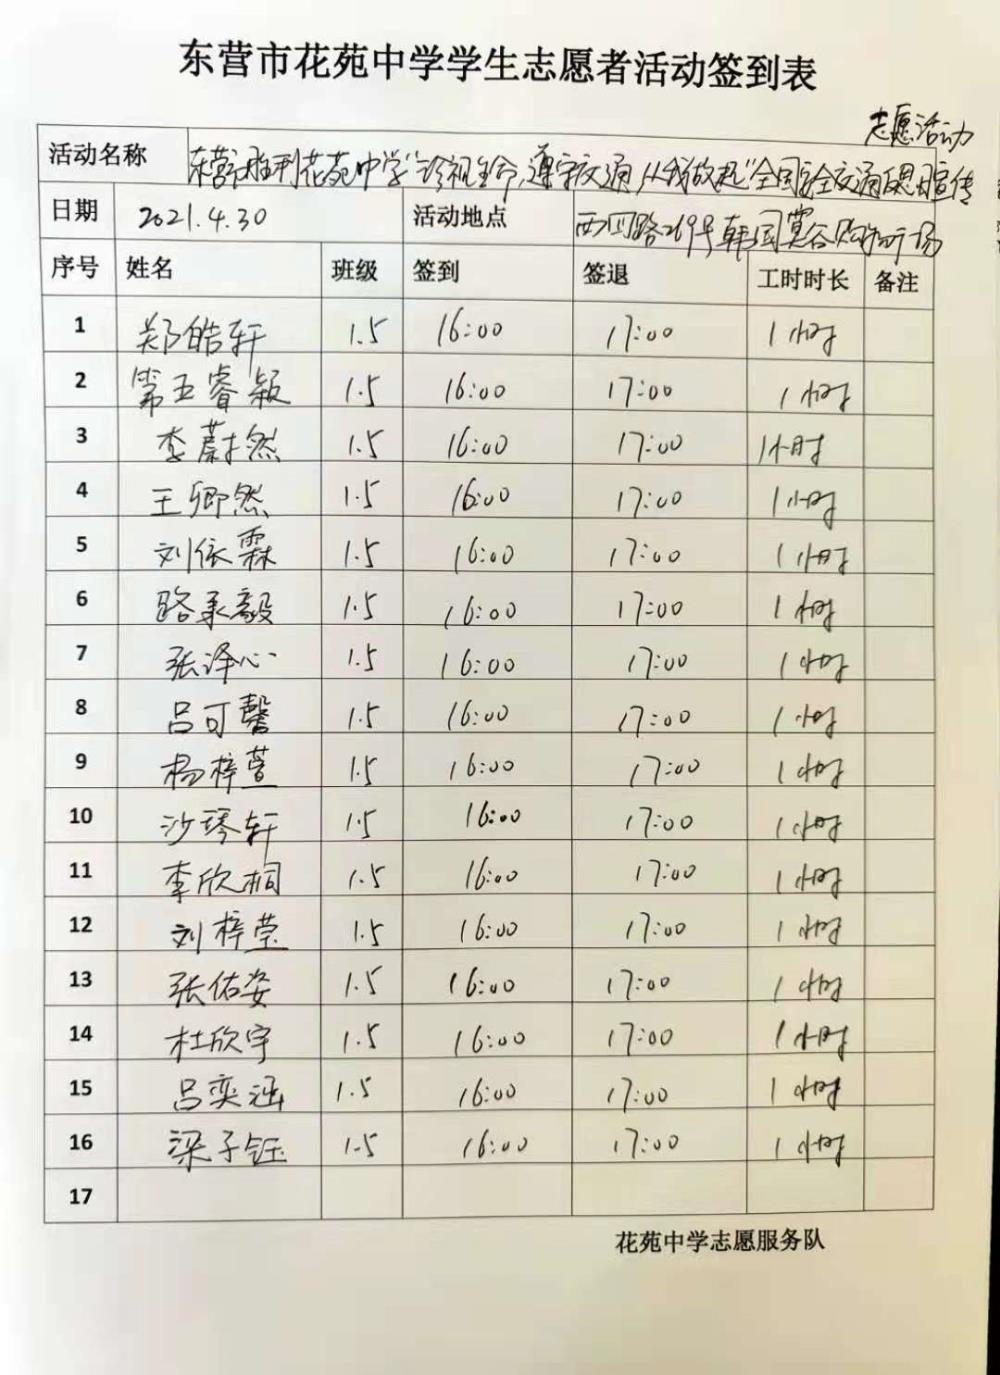 东营市花苑中学学生志愿者活动签到表
志愿活动
活动名称 东营市胜利花苑中学"珍视生命,遵守交通,从我做起"全国安全交通反思日宣传
日期 2021.4.30 活动地点 西四路269号韩国莫谷购物广场
序号 姓名 班级 签到 签退 工时时长 备注
1 郑皓轩 1.5 16:00 17:00 1小时
2 第五睿颖 1.5 16:00 17:00 1小时
3 李蔚然 1.5 16:00 17:00 1小时
4 王卿然 1.5 16:00 17:00 1小时
5 刘依霖 1.5 16:00 17:00 1小时
6 路承毅 1.5 16:00 17:00 1小时
7 张泽心 1.5 16:00 17:00 1小时
8 吕可馨 1.5 16:00 17:00 1小时
9 杨梓萱 1.5 16:00 17:00 1小时
10 沙琴轩 1.5 16:00 17:00 1小时
11 李欣桐 1.5 16:00 17:00 1小时
12 刘梓莹 1.5 16:00 17:00 1小时
13 张佑姿 1.5 16:00 17:00 1小时
14 杜欣宇 1.5 16:00 17:00 1小时
15 吕奕涵 1.5 16:00 17:00 1小时
16 梁子钰 1.5 16:00 17:00 1小时
17
花苑中学志愿服务队